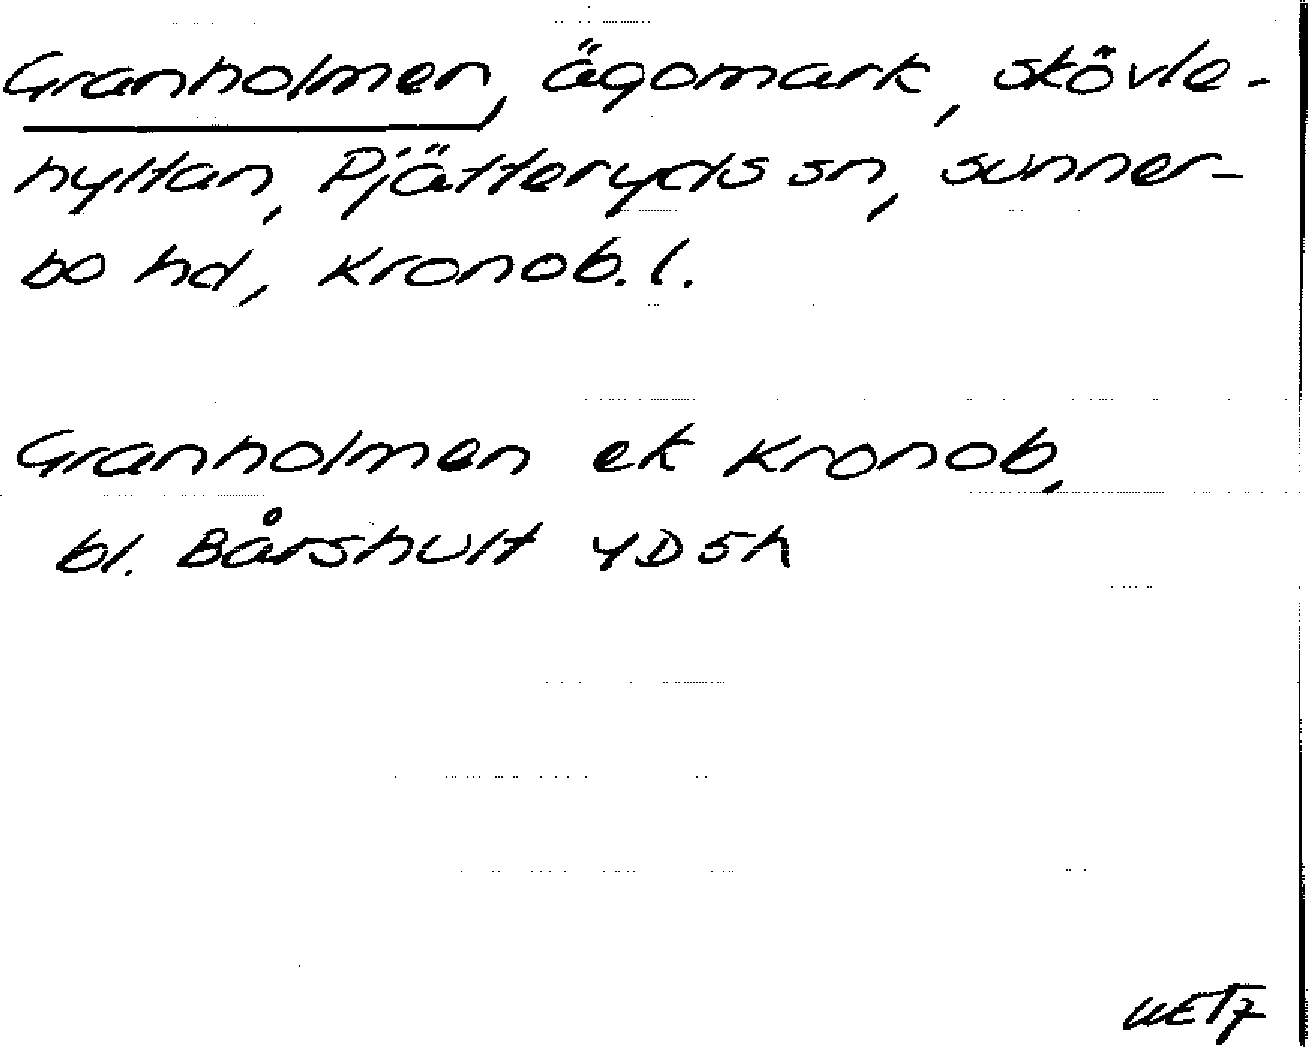 Granholmen, ägomark, Skövle-
hyltan, Pjätteryds sn, Sunner-
bo hd, Kronob. l.
Granholmen ek Kronob,
bl. Bårshult 4D5h